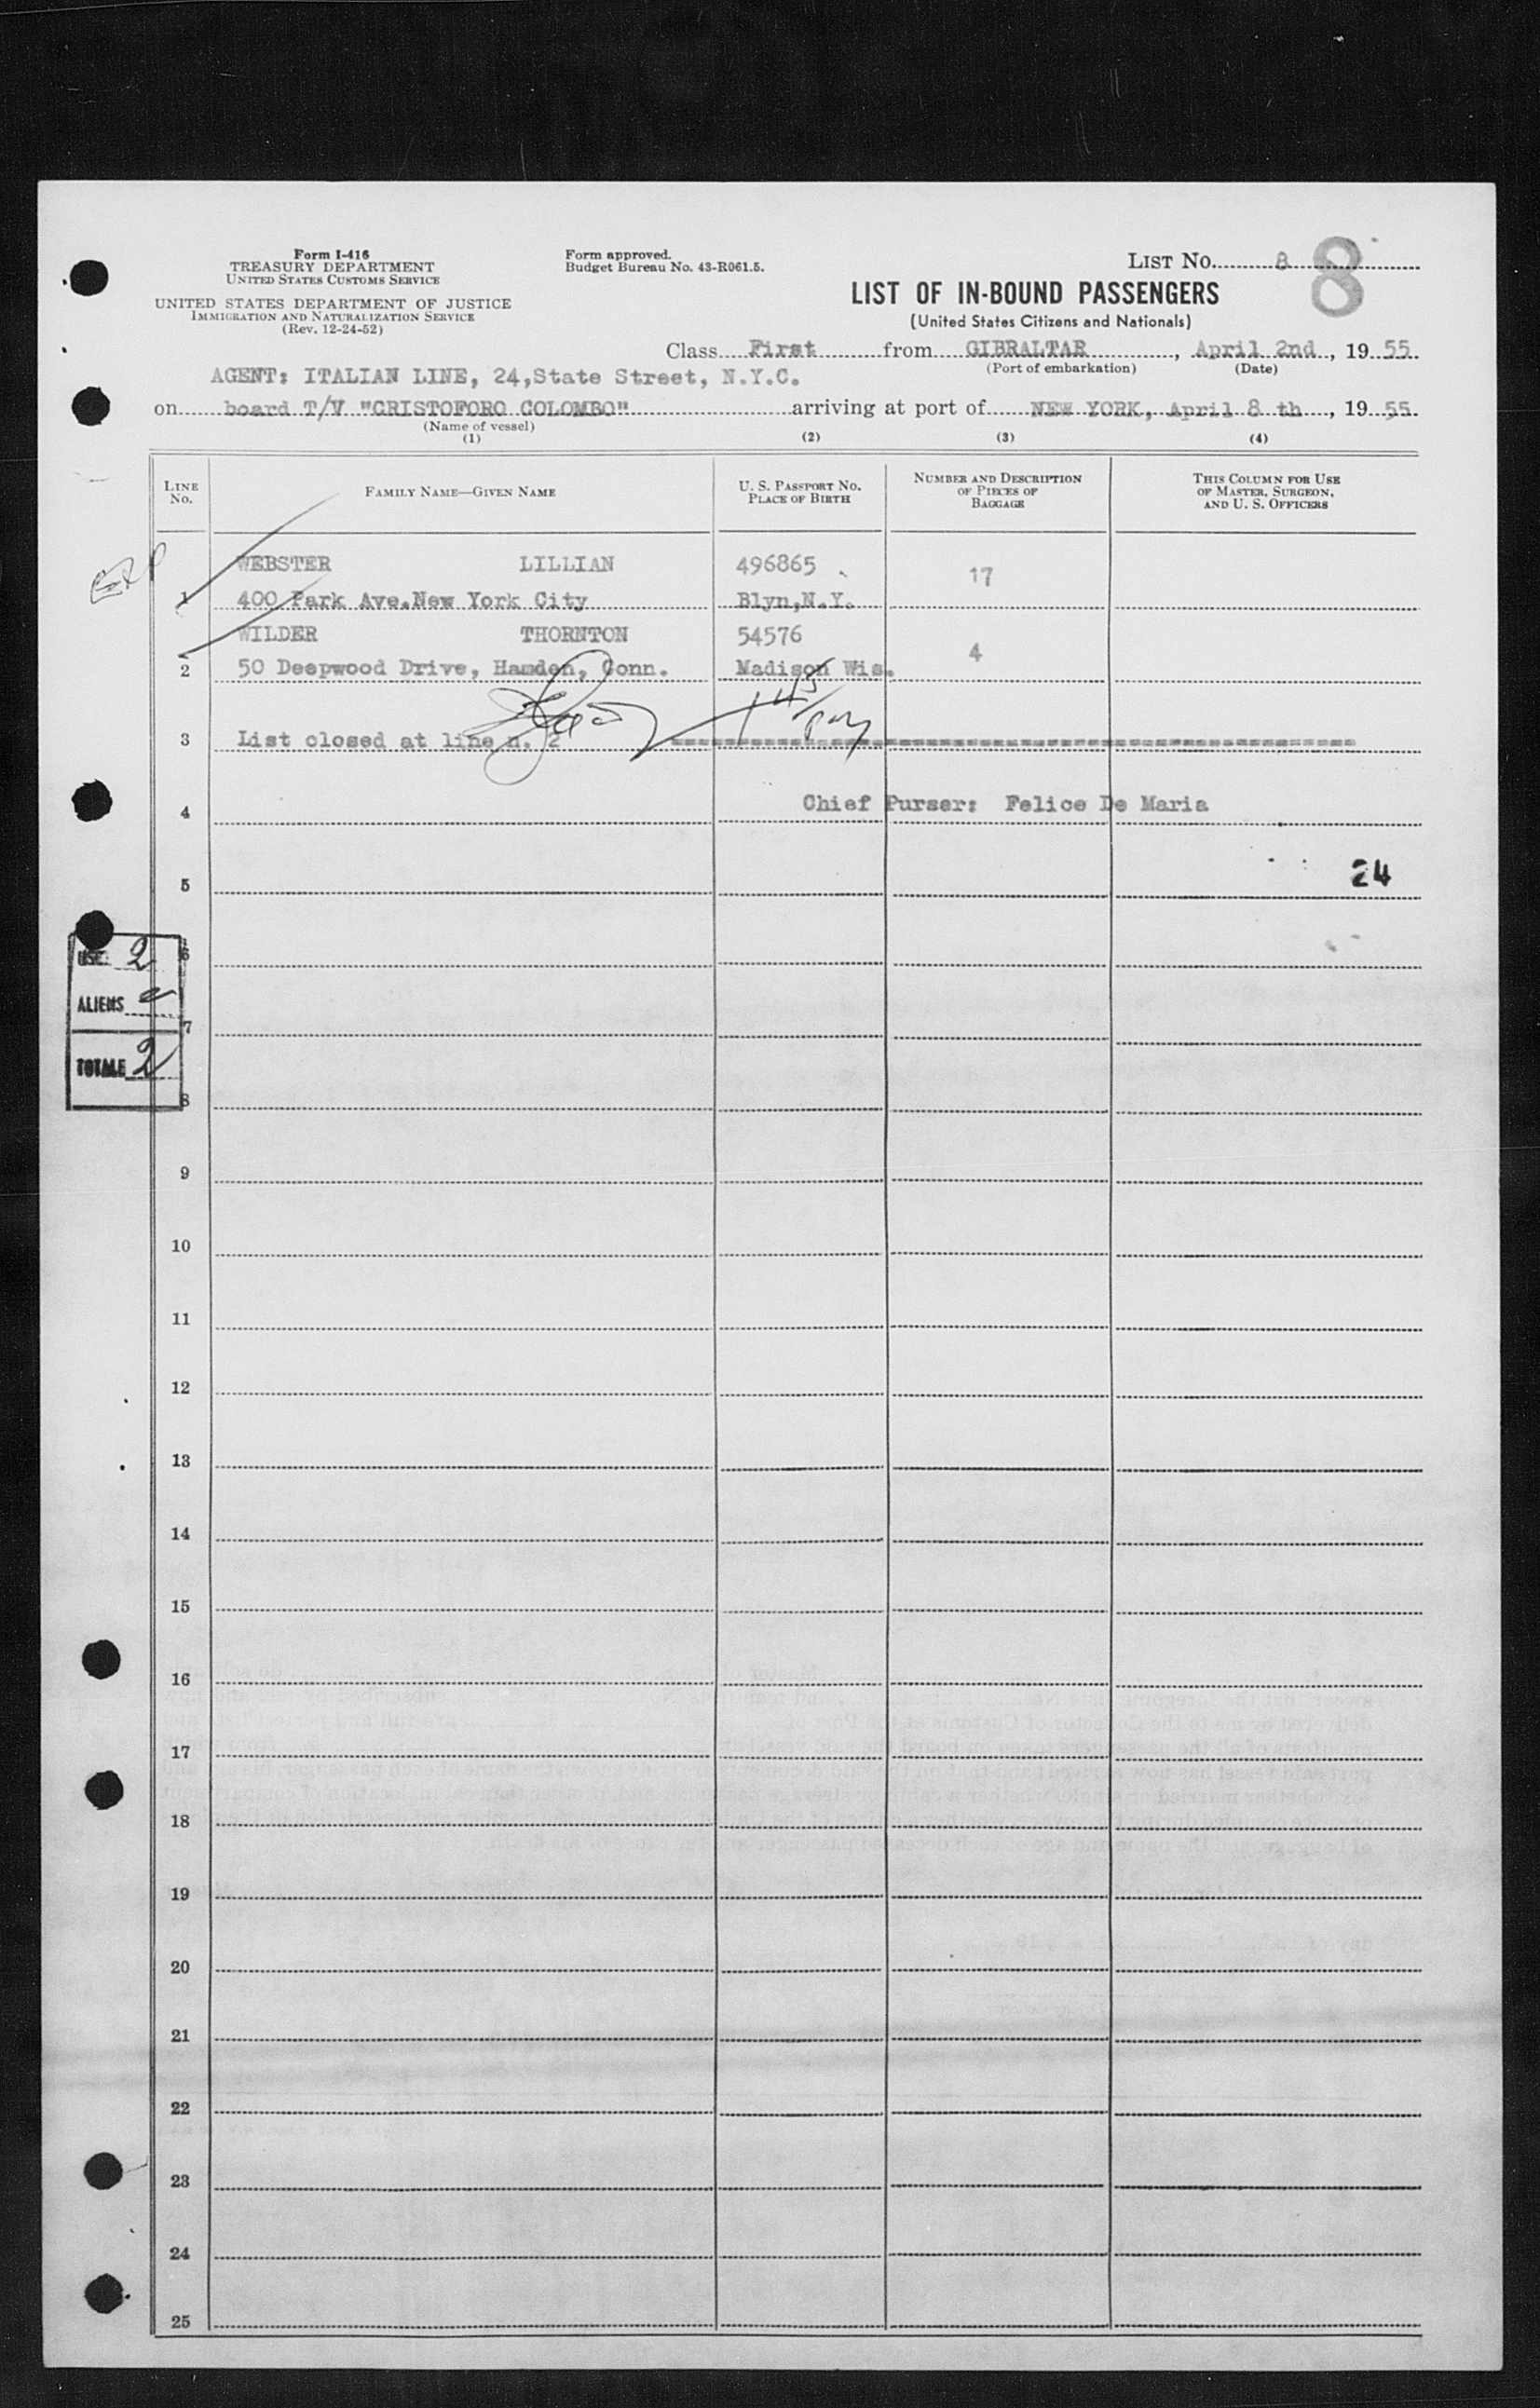 Form I-416
TREASURY DEPARTMENT
UNITED STATES CUSTOMS SERVICE
UNITED STATES DEPARTMENT OF JUSTICE
IMMIGRATION AND NATURALIZATION SERVICE
(Rev. 12-24-52)
Form approved.
Budget Bureau No. 43-R061.5.
LIST NO. 8
8
LIST OF IN-BOUND PASSENGERS
(United States Citizens and Nationals)
Class First from GIBRALTAR, April 2nd, 19 55
(Port of embarkation) (Date)
AGENT: ITALIAN LINE, 24,State Street, N.Y.C.
on board T/V "CRISTOFORO COLOMBO" arriving at port of NEW YORK, April 8 th, 19 55
(Name of vessel)
(1) (2) (3) (4)
LINE NO. FAMILY NAME—GIVEN NAME U. S. PASSPORT NO. PLACE OF BIRTH NUMBER AND DESCRIPTION OF PIECES OF BAGGAGE THIS COLUMN FOR USE OF MASTER, SURGEON, AND U. S. OFFICERS
WEBSTER LILLIAN 496865 17
1 400 Park Ave.New York City Blyn,N.Y.
WILDER THORNTON 54576 4
2 50 Deepwood Drive, Hamden, Conn. Madison Wis.
3 List closed at line n. 2
Chief Purser: Felice De Maria
4
5 24
USC. 2 6
ALIENS
7
TOTALE 2
8
9
10
11
12
13
14
15
16
17
18
19
20
21
22
23
24
25